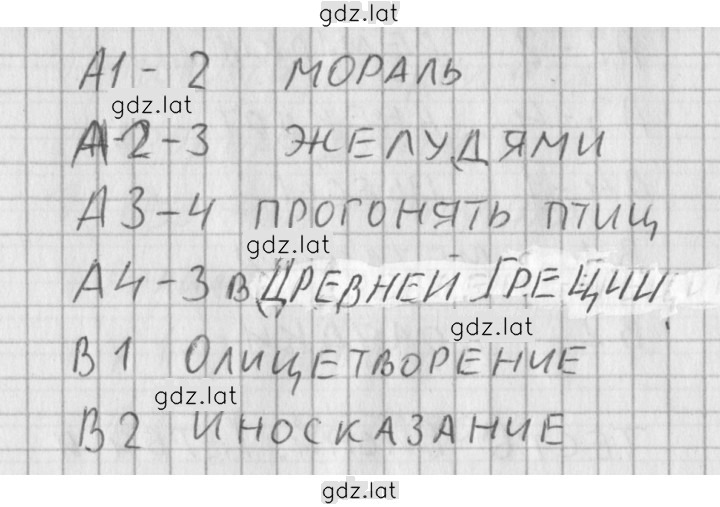 gdz.lat
А1 - 2 МОРАЛЬ
gdz.lat
А2 - 3 ЖЕЛУДЯМИ
А3 - 4 ПРОГОНЯТЬ ПТИЦ
gdz.lat
А4 - 3 В ДРЕВНЕЙ ГРЕЦИИ.
gdz.lat
В1 ОЛИЦЕТВОРЕНИЕ
gdz.lat
В2 ИНОСКАЗАНИЕ
gdz.lat